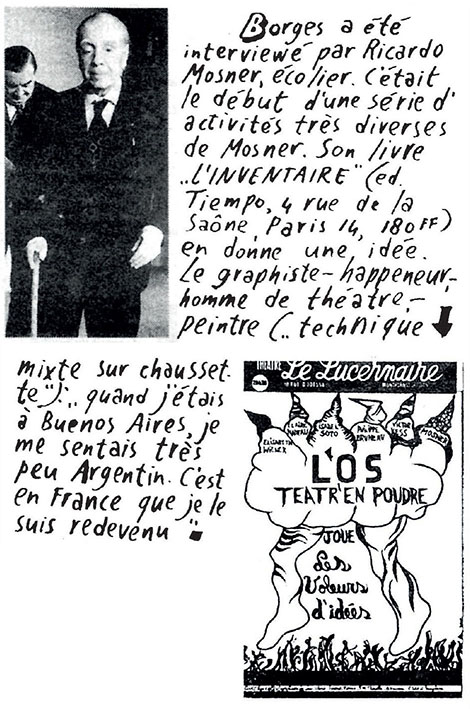 Borges a été
interviewé par Ricardo
Mosner, écolier. C'était
le début d'une série d'
activités très diverses
de Mosner. Son livre
„L'INVENTAIRE" (ed.
Tiempo, 4 rue de la
Saône, Paris 14, 180FF)
en donne une idée.
Le graphiste-happeneur-
homme de théatre-
peintre („technique
mixte sur chausset-
te"): „quand j'étais
à Buenos Aires, je
me sentais très
peu Argentin. C'est
en France que je le
suis redevenu"
THÉATRE Le Lucernaire
ELISABETH WIENER
SOTO
PHILIPPE BRUNEAU
VICTOR
MOSNER
L'OS
TEATR'EN POUDRE
JOUE
Les
Voleurs
d'idées